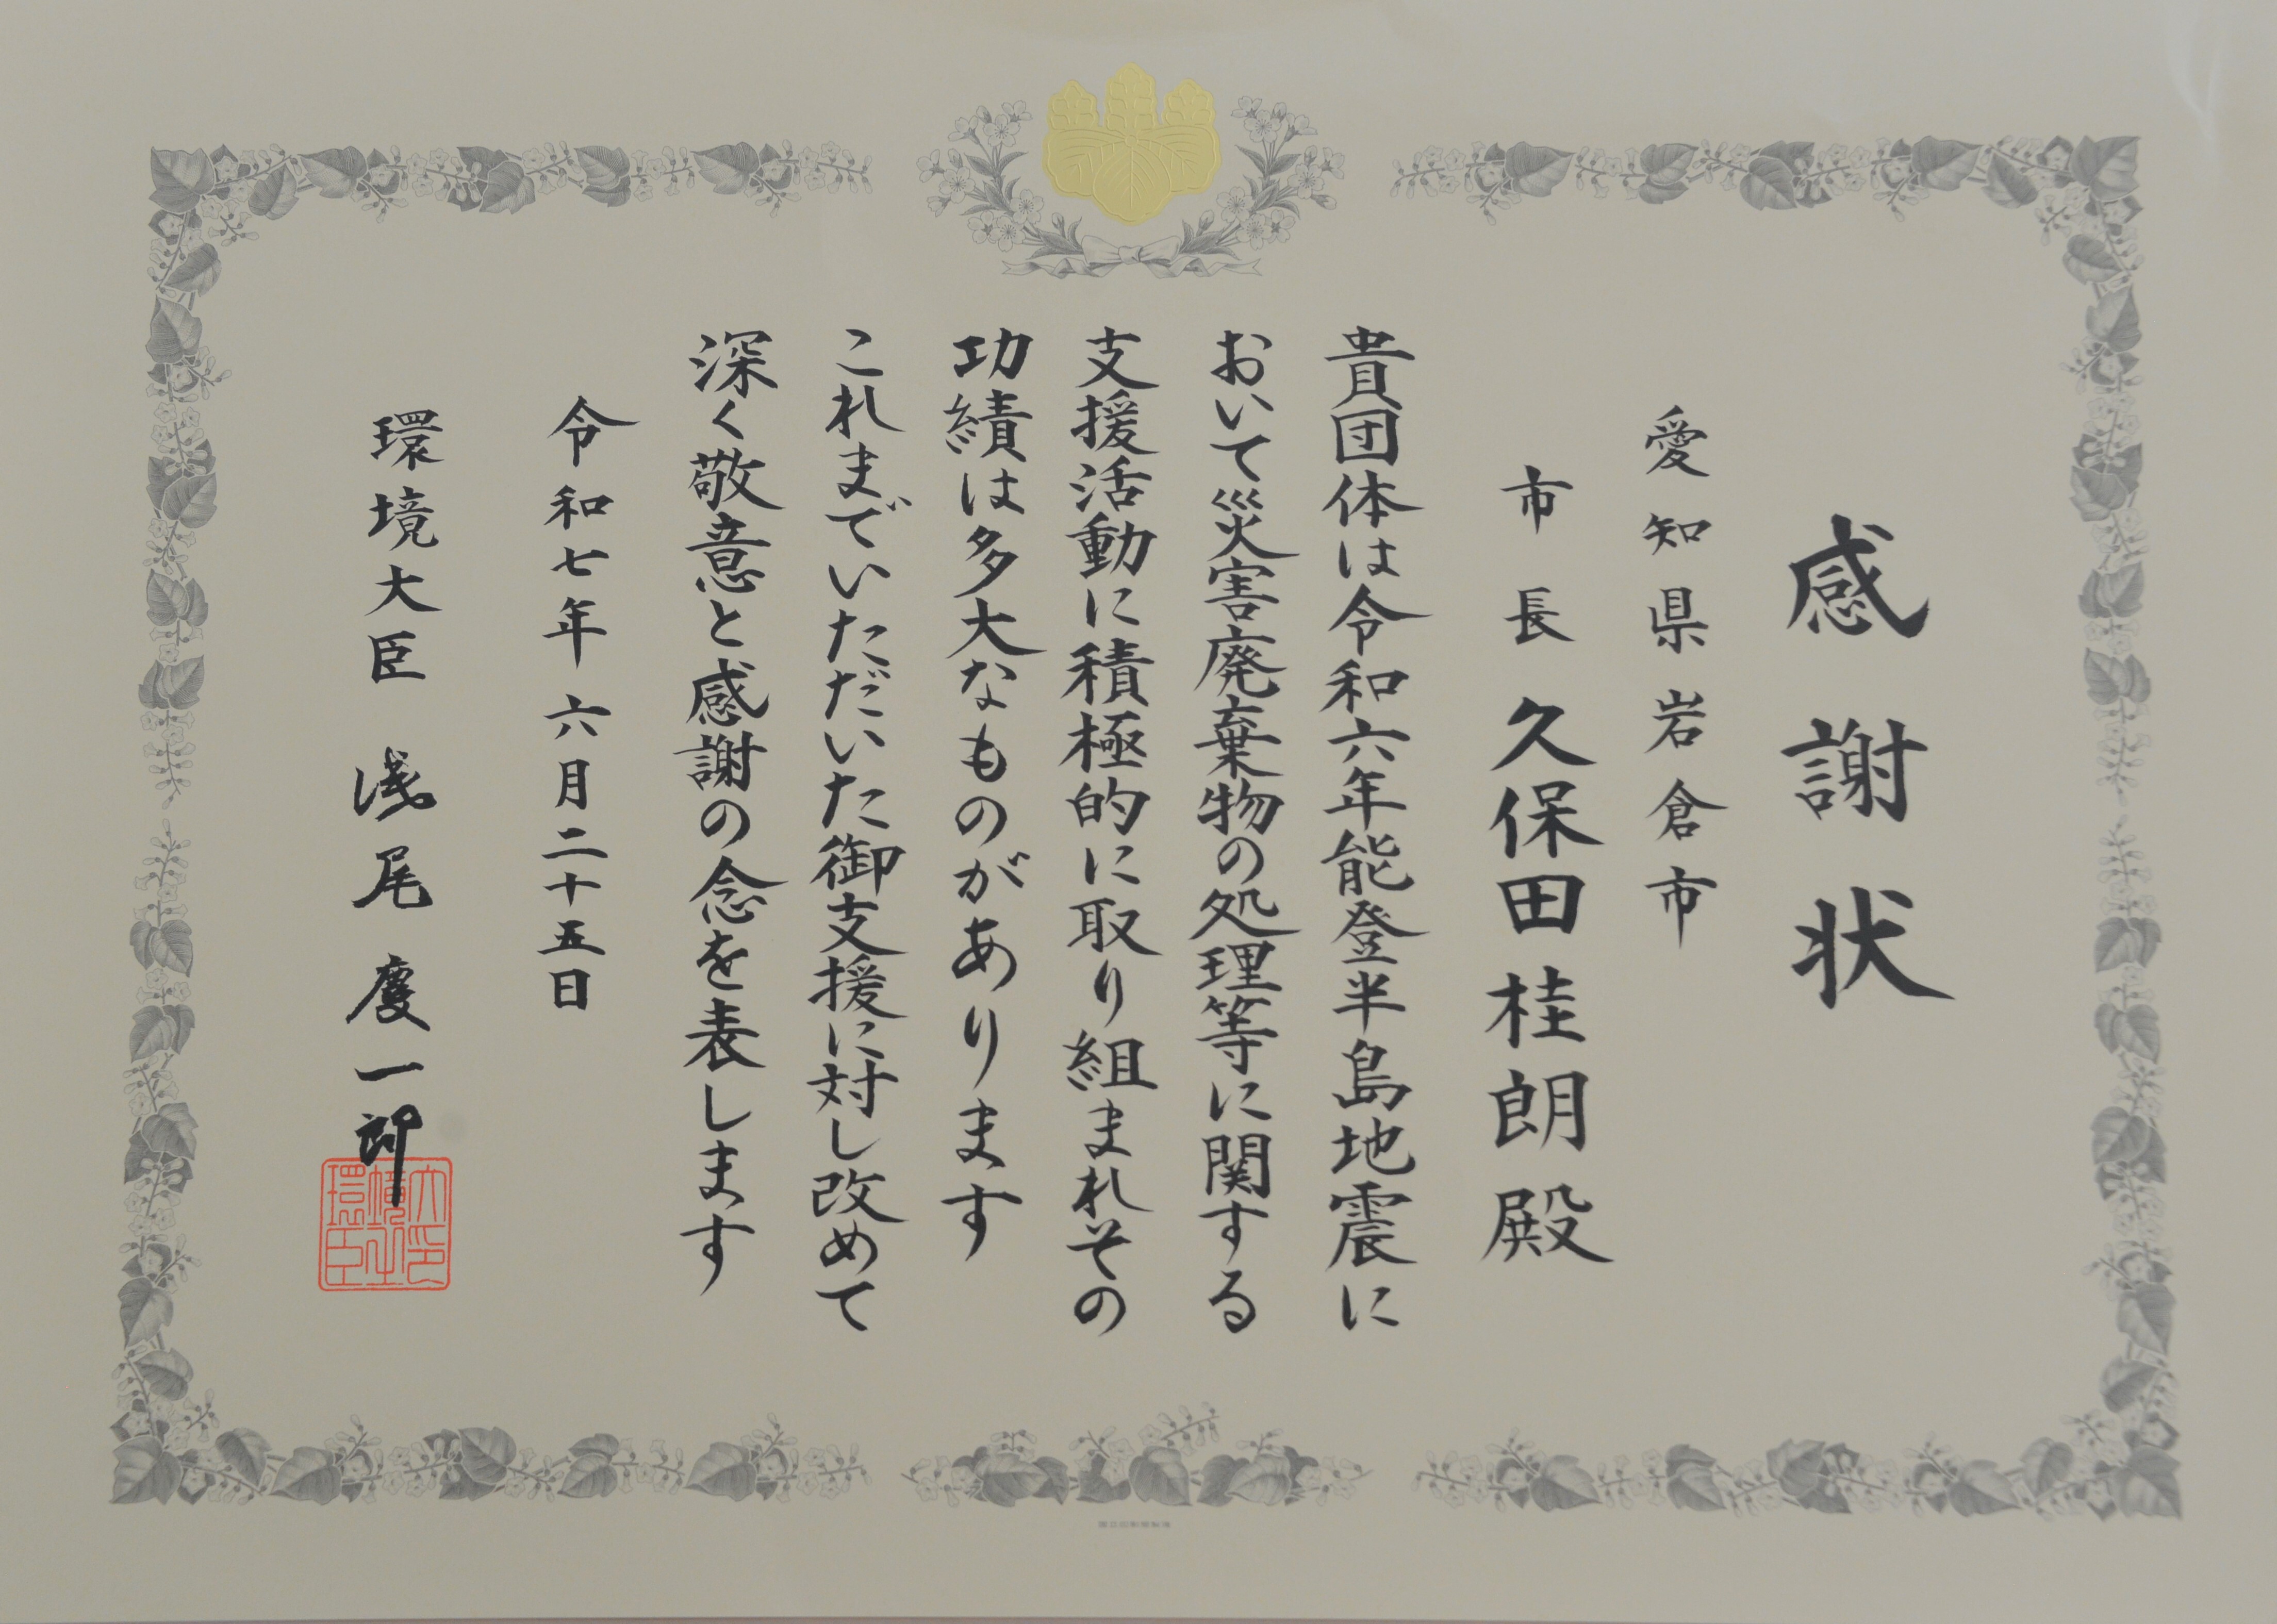 感謝状
愛知県岩倉市
市長 久保田 桂朗 殿
貴団体は令和六年能登半島地震に
おいて災害廃棄物の処理等に関する
支援活動に積極的に取り組まれその
功績は多大なものがあります
これまでいただいた御支援に対し改めて
深く敬意と感謝の念を表します
令和七年六月二十五日
環境大臣 浅尾慶一郎
環境大臣之印